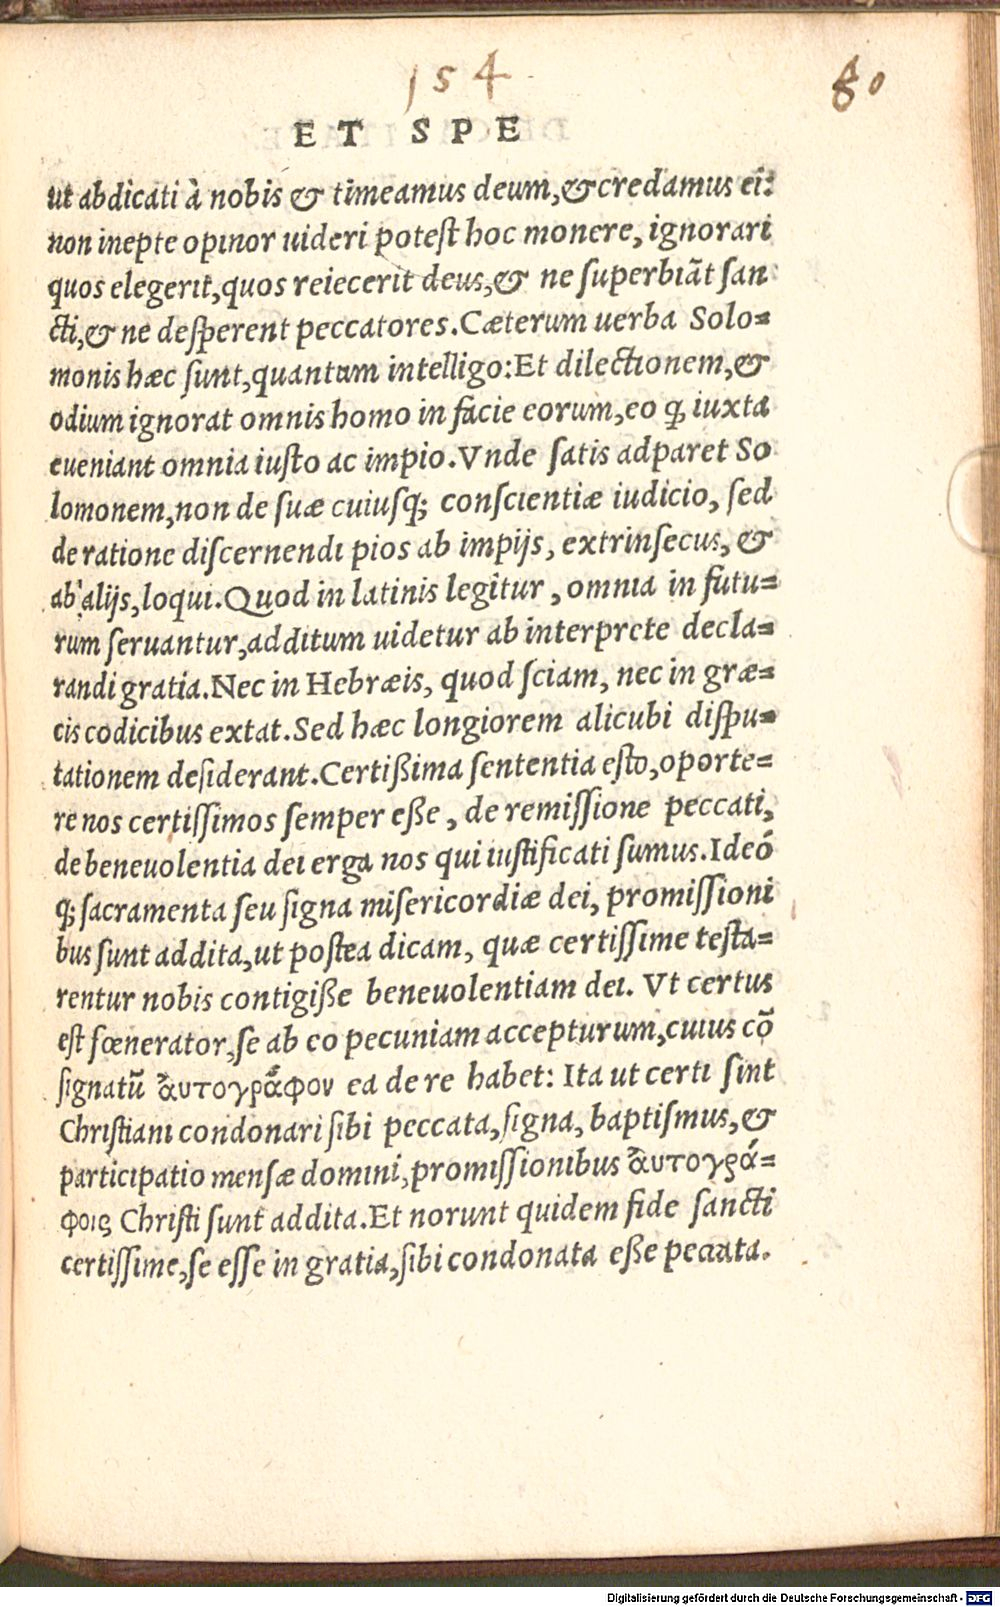 154
80
ET SPE
ut abdicati à nobis & timeamus deum,& credamus ei:
non inepte opinor uideri potest hoc monere, ignorari
quos elegerit,quos reiecerit deus,& ne superbiāt san
cti,& ne desperent peccatores.Cæterum uerba Solo=
monis hæc sunt,quantum intelligo:Et dilectionem,&
odium ignorat omnis homo in facie eorum,eo ꝙ iuxta
eueniant omnia iusto ac impio.Vnde satis adparet So
lomonem,non de suæ cuiusq; conscientiæ iudicio, sed
de ratione discernendi pios ab impijs, extrinsecus, &
ab alijs,loqui.Quod in latinis legitur , omnia in futu=
rum seruantur,additum uidetur ab interprete decla=
randi gratia.Nec in Hebræis, quod sciam, nec in græ=
cis codicibus extat.Sed hæc longiorem alicubi dispu=
tationem desiderant.Certißima sententia esto,oporte=
re nos certissimos semper eße , de remissione peccati,
de beneuolentia dei erga nos qui iustificati sumus.Ideó
q; sacramenta seu signa misericordiæ dei, promissioni
bus sunt addita,ut postea dicam, quæ certissime testa=
rentur nobis contigiße beneuolentiam dei. Vt certus
est fœnerator,se ab eo pecuniam accepturum,cuius cō
signatū ἀυτογράφου ea de re habet: Ita ut certi sint
Christiani condonari sibi peccata,signa, baptismus,&
participatio mensæ domini,promissionibus ἀυτογρά=
φοις Christi sunt addita.Et norunt quidem fide sancti
certissime,se esse in gratia,sibi condonata eße peccata.
Digitalisierung gefördert durch die Deutsche Forschungsgemeinschaft - DFG